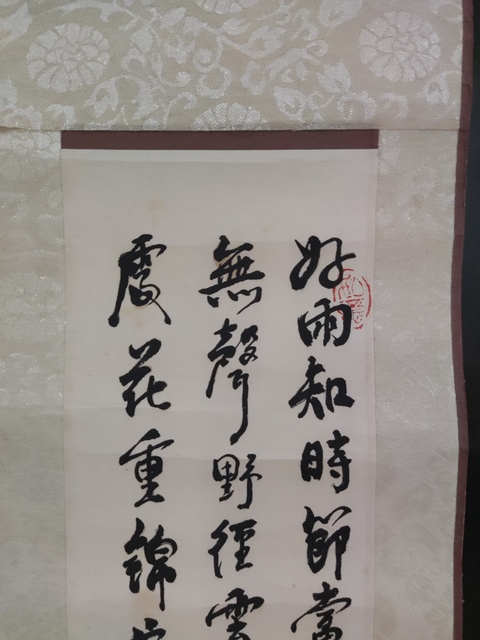 好雨知時節當
無聲野徑雲
處花重錦